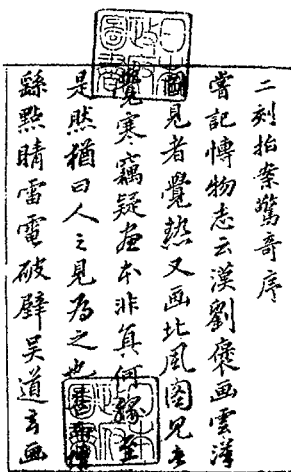 日本政府圖書
二刻拍案驚奇序
嘗記博物志云漢劉褒画雲漢
圖見者覺熱又画北風圖見者
覺寒竊疑画本非真何緣至
是然猶曰人之見為之也甚而僧
繇點睛雷電破壁吳道玄画